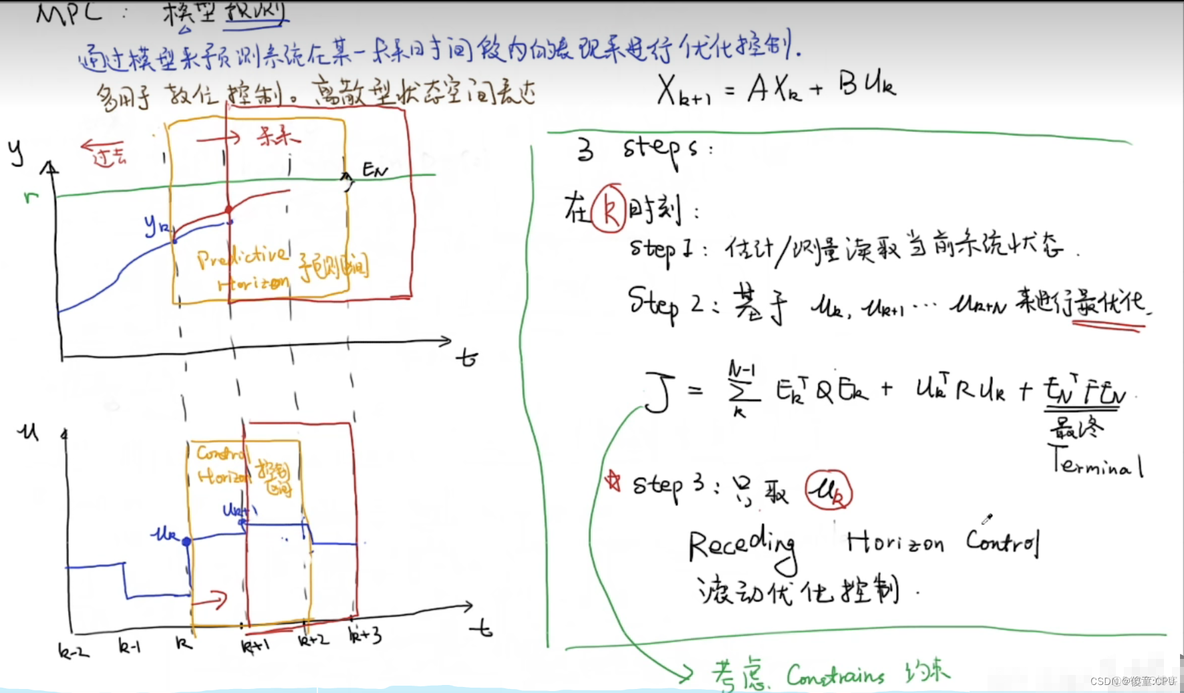 MPC: 模型预测
通过模型来预测系统在某一未来时间段内的表现来进行优化控制.
多用于数位控制。离散型状态空间表达
X_{k+1} = AX_k + BU_k
y
过去
未来
r
E_N
y_k
Predictive
Horizon
预测区间
t
u
Control
Horizon
控制
区间
u_k
u_{k+1}
k-2 k-1 k k+1 k+2 k+3
t
3 steps:
在k时刻:
step1: 估计/测量读取当前系统状态.
Step 2: 基于 u_k, u_{k+1} ... u_{k+N} 来进行最优化.
J = \sum_{k}^{N-1} E_k^T Q E_k + U_k^T R U_k + E_N^T F E_N
最终
Terminal
step 3: 只取 u_k
Receding Horizon Control
滚动优化控制.
考虑. Constrains 约束
CSDN @傻童:CPU